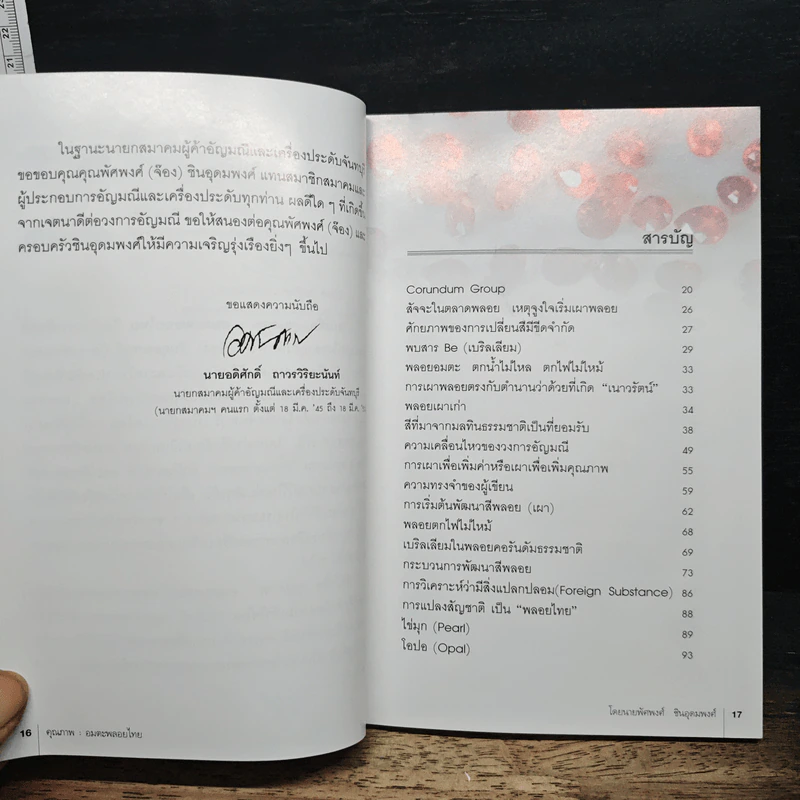 21 22
ในฐานะนายกสมาคมผู้ค้าอัญมณีและเครื่องประดับจันทบุรี
ขอขอบคุณคุณพัศพงศ์ (จ๊อง) ชินอุดมพงศ์ แทนสมาชิกสมาคมและ
ผู้ประกอบการอัญมณีและเครื่องประดับทุกท่าน ผลดีใด ๆ ที่เกิดขึ้น
จากเจตนาดีต่อวงการอัญมณี ขอให้สนองต่อคุณพัศพงศ์ (จ๊อง) และ
ครอบครัวชินอุดมพงศ์ให้มีความเจริญรุ่งเรืองยิ่งๆ ขึ้นไป
ขอแสดงความนับถือ
นายอดิศักดิ์ ถาวรวิริยะนันท์
นายกสมาคมผู้ค้าอัญมณีและเครื่องประดับจันทบุรี
(นายกสมาคมฯ คนแรก ตั้งแต่ 18 มี.ค. '45 ถึง 18 มี.ค.
16 คุณภาพ : อมตะพลอยไทย
สารบัญ
Corundum Group 20
สัจจะในตลาดพลอย เหตุจูงใจเริ่มเผาพลอย 26
ศักยภาพของการเปลี่ยนสีมีขีดจำกัด 27
พบสาร Be (เบริลเลียม) 29
พลอยอมตะ ตกน้ำไม่ไหล ตกไฟไม่ไหม้ 33
การเผาพลอยตรงกับตำนานว่าด้วยที่เกิด "เนาวรัตน์" 33
พลอยเผาเก่า 34
สีที่มาจากมลทินธรรมชาติเป็นที่ยอมรับ 38
ความเคลื่อนไหวของวงการอัญมณี 49
การเผาเพื่อเพิ่มค่าหรือเผาเพื่อเพิ่มคุณภาพ 55
ความทรงจำของผู้เขียน 59
การเริ่มต้นพัฒนาสีพลอย (เผา) 62
พลอยตกไฟไม่ไหม้ 68
เบริลเลียมในพลอยคอรันดัมธรรมชาติ 69
กระบวนการพัฒนาสีพลอย 73
การวิเคราะห์ว่ามีสิ่งแปลกปลอม(Foreign Substance) 86
การแปลงสัญชาติ เป็น "พลอยไทย" 88
ไข่มุก (Pearl) 89
โอปอ (Opal) 93
โดยนายพัศพงศ์ ชินอุดมพงศ์ 17